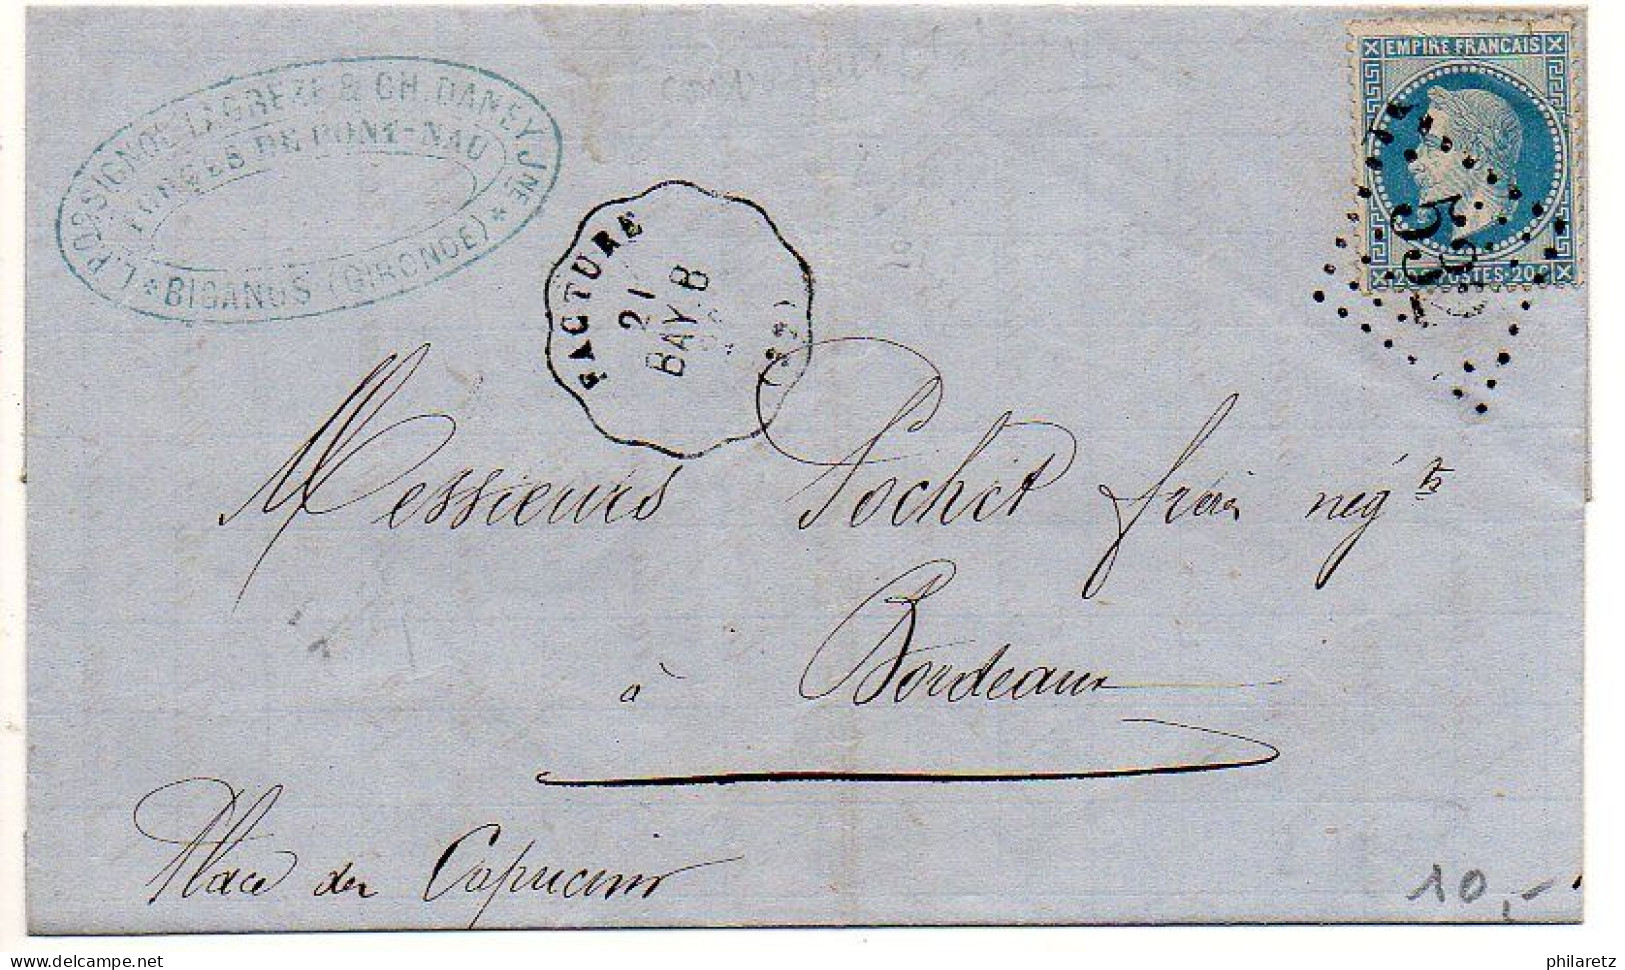 EMPIRE FRANCAIS
& CH. DANEY JNE *
FORGES DE PONT-NAU
* BIGANOS (GIRONDE) *
FACTURE
21
BAY. B
20c POSTES 20c
Messieurs Pochet frères nég ts
à Bordeaux
Place des Capucins
10,-
delcampe.net
philaretz